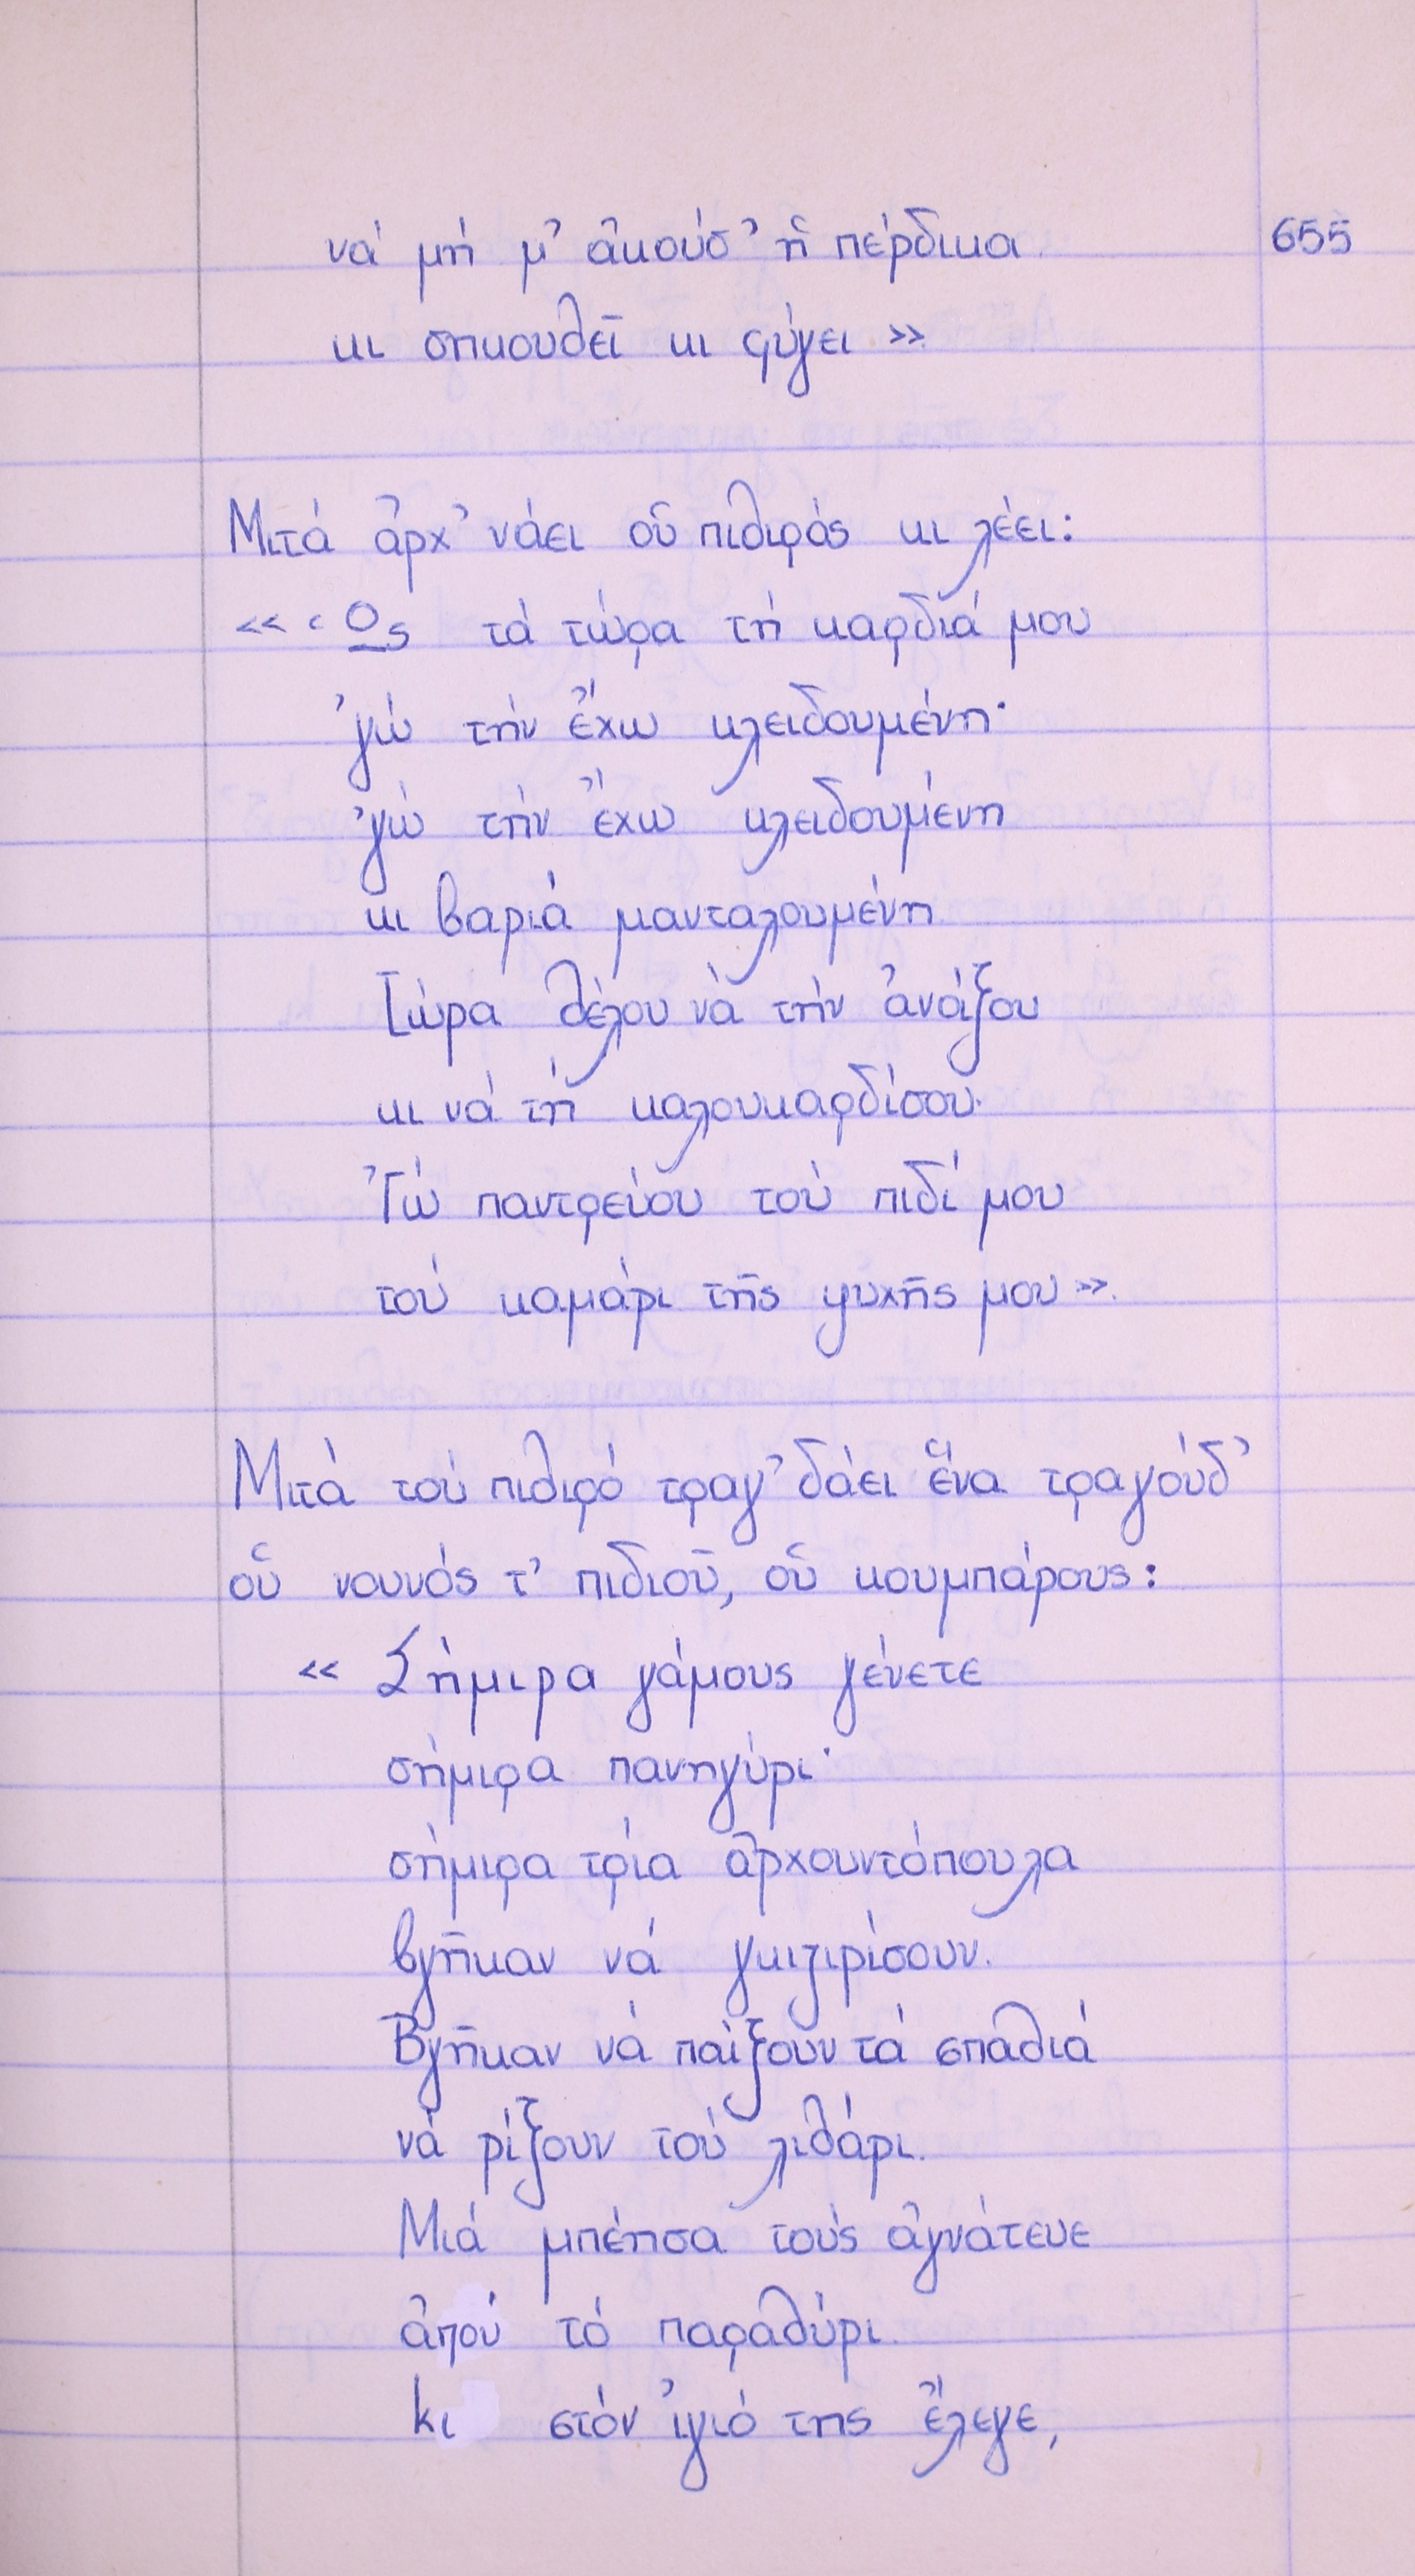 νά μή μ' ἀκούσ' ἡ πέρδικα 655
κι σηκουθεῖ κι φύγει »
Μιτά ἀρχ' νάει οὑ πιθιρός κι λέει:
« Ὡς τά τώρα τή καρδιά μου
'γώ τήν ἔχω κλειδουμένη·
'γώ τήν ἔχω κλειδουμένη
κι βαριά μανταλουμένη
Τώρα θέλου νά τήν ἀνοίξου
κι νά τή καλουκαρδίσου.
'Γώ παντρεύου τού πιδί μου
τού καμάρι τῆς ψυχῆς μου».
Μιτά τού πιθιρό τραγ' δάει ἕνα τραγούδ'
οὑ νουνός τ' πιδιοῦ, οὑ κουμπάρους:
« Σήμιρα γάμους γένετε
σήμιρα πανηγύρι·
σήμιρα τρία ἀρχουντόπουλα
βγῆκαν νά γκιζιρίσουν.
Βγῆκαν νά παίξουν τά σπαθιά
νά ρίξουν τού λιθάρι.
Μιά μπέησα τούς ἀγνάτευε
ἀπού τό παραθύρι.
Κι στόν ἰγιό της ἔλεγε,